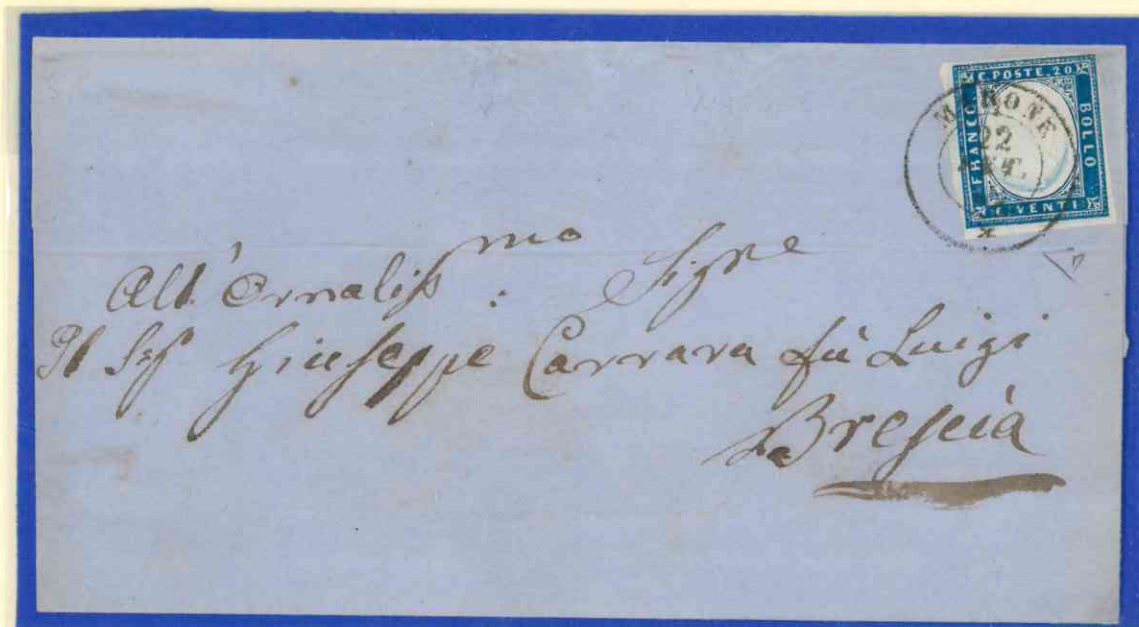 C. POSTE. 20
FRANCO
BOLLO
C. VENTI
MARONE
22
All' Ornatiss.mo Sigre
Il Sig Giuseppe Carrara fù Luigi
Brescia